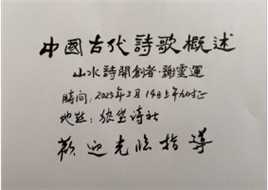 中國古代詩歌概述
山水詩開創者·謝靈運
時間：2023年3月14日上午
地點：詩社
歡迎光臨指導